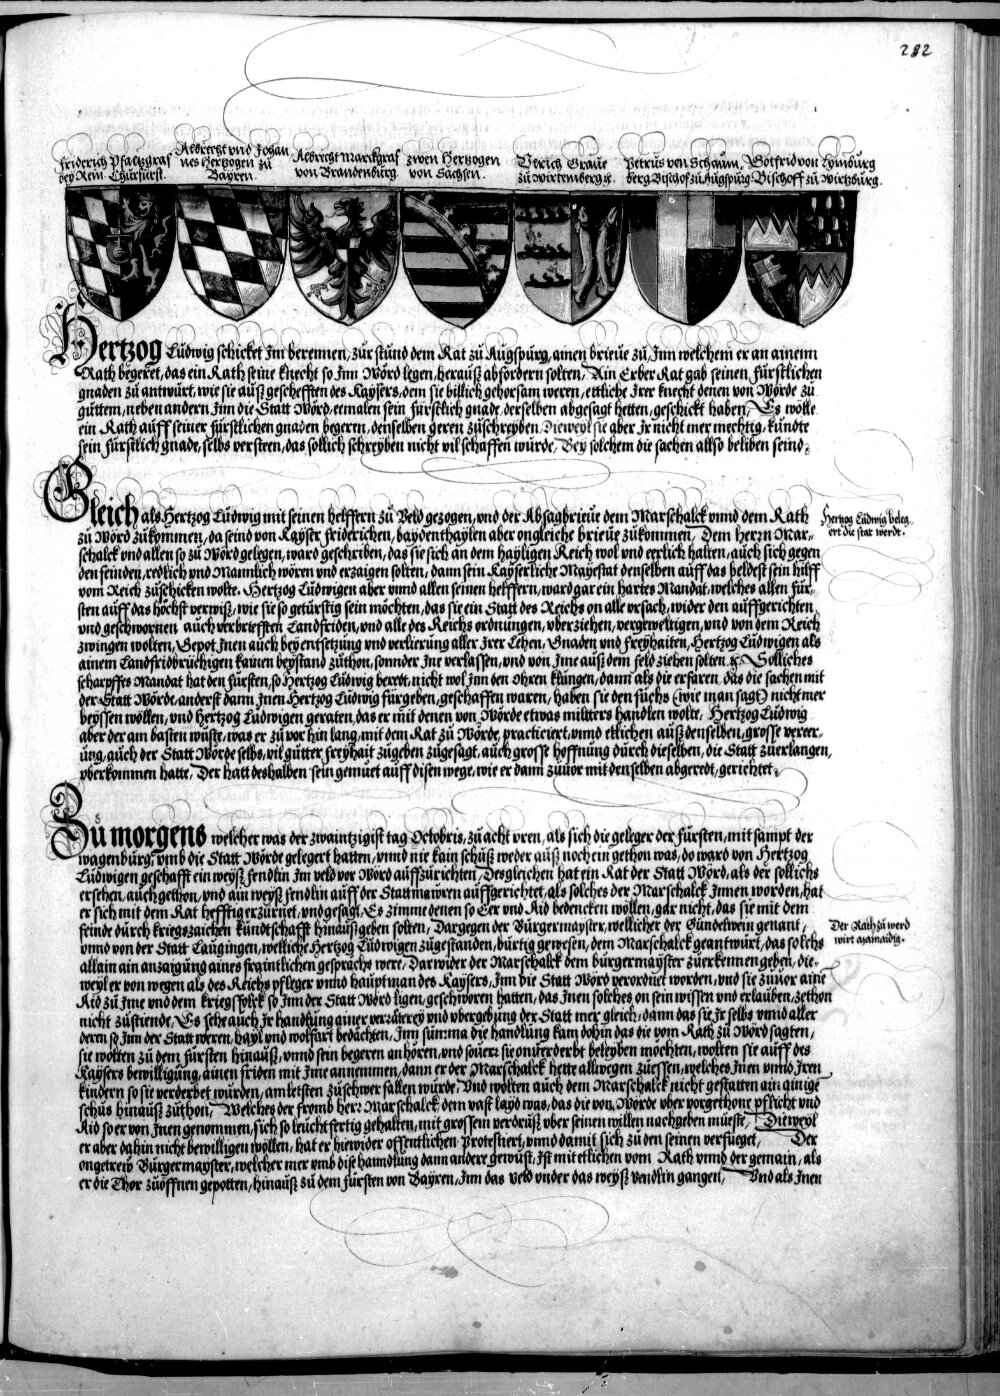 282
Friderich Pfaltzgraf
bey Rein. Churfürst.
Albrecht vnd Johan
nes Hertzogen zu
Bayren.
Albrecht Marckgraf
von Brandenburg.
zwen Hertzogen
von Sachsen.
Vlrich Graue
zu Wirtemberg ꝛc.
Petrus von Schaum,
berg Bischof zu Augspurg.
Gotfrid von Lymburg
Bischoff zu Wirtzburg.
Hertzog Ludwig schicket Im berennen, zur stund dem Rat zu Augspurg, ainen brieue zu, Inn welchem er an ainem
Rath begeret, das ein Rath seine knecht so Inn Wörd legen, herauß abfordern solten, Ain Erber Rat gab seinen fürstlichen
gnaden zu antwurt, wie sie auß gescheften des Kaysers, dem sie billich gehorsam weren, ettliche Irer knecht denen von Wörde zu
guttem, neben andern Inn die Statt Wörd, eemalen sein fürstlich gnade, derselben abgesagt hetten, geschickt haben, Es wölle
ein Rath auff seiner fürstlichen gnaden begeren, denselben geren zuschreyben, Dieweyl sie aber Ir nicht mer mechtig, kundte
sein fürstlich gnade, selbs versteen, das sollich schreyben nicht vil schaffen wurde, Bey solchem die sachen allso beliben seind.
Gleich als Hertzog Ludwig mit seinen helffern zu Veld gezogen, vnd der Absagbrieue dem Marschalck vnnd dem Rath
zu Wörd zukommen, da seind von Kayser friderichen, bayden thaylen aber ongleiche brieue zukommen, Dem herrn Mar-
schalck vnd allen so zu Wörd gelegen, ward geschriben, das sie sich an dem hayligen Reich wol vnd eerlich halten, auch sich gegen
den feinden, redlich vnd Mannlich wören vnd erzaigen solten, dann sein Kayserliche Mayestat denselben auff das beldest sein hilff
vom Reich zuschicken wolte. Hertzog Ludwigen aber vnnd allen seinen helffern, ward gar ein hartes Mandat, welches allen für-
sten auff das höchst verwiß, wie sie so getürstig sein möchten, das sie ein Statt des Reichs on alle vrsach, wider den auffgerichten
vnd geschwornen auch verbriefften Landfriden, vnd alle des Reichs ordnungen, vberziehen, vergeweltigen, vnd von dem Reich
zwingen wolten, Gepot Inen auch bey entsetzung vnd verlierung aller Irer Lehen, Gnaden vnd freyhaiten, Hertzog Ludwigen als
ainem Landfridbrüchigen kainen beystand zuthon, sonnder Ine verlassen, vnd von Ime auß dem feld ziehen solten ꝛc. Solliches
scharpffes Mandat hat den fürsten, so Hertzog Ludwig beredt, nicht wol Inn den Ohren klungen, dann als die erfaren, das die sachen mit
der Statt Wörde, anderst dann Inen Hertzog Ludwig fürgeben, geschaffen waren, haben sie den fuchs (wie man sagt) nicht mer
beyssen wöllen, vnd Hertzog Ludwigen geraten, das er mit denen von Wörde etwas milters handlen wolte, Hertzog Ludwig
aber der am basten wüste, was er zuvor hin lang, mit dem Rat zu Wörde, practiciert, vnnd etlichen auß denselben, grosse vereer-
ung, auch der Statt Wörde selbs, vil gutter freyhait zugeben zugesagt, auch grosse hoffnung durch dieselben, die Statt zuerlangen,
vberkommen hatte, Der hatt deshalben sein gemuet auff disen wege, wie er dann zuuor mit denselben abgeredt, gerichtet.
Hertzog Ludwig beleg-
ert die stat werdt.
Zu morgens welcher was der zwaintzigist tag Octobris, zu acht vren, als sich die geleger der fürsten, mit sampt der
wagenburg, vmb die Statt Wörde gelegert hatten, vnnd nie kain schuß weder auß noch ein gethon was, do ward von Hertzog
Ludwigen geschafft ein weyß fendlin Im veld vor Word auffzurichten, Desgleichen hat ein Rat der Statt Wörd, als der sollichs
ersehen, auch gethon, vnd ain weyß fendlin auff der Stattmawren auffgerichtet, als solches der Marschalck Innen worden, hat
er sich mit dem Rat hefftig erzürnet, vnd gesagt, Es zimme denen so Eer vnd Aid bedencken wöllen, gar nicht, das sie mit dem
feinde durch kriegszaichen kundtschafft hinauß geben solten, Dargegen der Burgermayster, wellicher der Gundelwein genant,
vnnd von der Statt Laugingen, welliche Hertzog Ludwigen zugestanden, bürtig gewesen, dem Marschalck geantwurt, das solchs
allain ain anzaigung aines fraintlichen gesprächs were, Darwider der Marschalck dem burgermayster zuerkennen geben, die-
weyl er von wegen als des Reichs pfleger vnnd hauptman des Kaysers, Inn die Statt Wörd verordnet worden, vnd sie zuuor aine
Aid zu Ime vnd dem kriegsfolck so Inn der Statt Wörd ligen, geschworen hatten, das Inen solches on sein wissen vnd erlauben, zethon
nicht zustiende, Es sehe auch Ir handlung ainer verräterey vnd vbergebung der Statt mer gleich, dann das sie Ir selbs vnnd aller
dern so Inn der Statt weren, hayl vnd wolfart bedächten, Inn summa die handlung kam dohin das die vom Rath zu Wörd sagten,
sie wolten zu dem fürsten hinauß, vnnd sein begeren anhören, vnd souerr sie onuerderbt beleyben möchten, wolten sie auff des
Kaysers bewilligung, ainen friden mit Ime annemmen, dann er der Marschalck hette allwegen zuessen, welches Inen vnnd Iren
kindern so sie verderbet wurden, am letsten zuschwer fallen würde. Vnd wolten auch dem Marschalck nicht gestatten ain ainige
schus hinauß zuthon, Welches der fromb herr Marschalck, dem vast layd was, das die von Wörde vber vorgethone pflicht vnd
Aid so er von Inen genommen, sich so leuchtfertig gehalten, mit grossem verdruß vber seinen willen nachgeben mueste, Dieweyl
er aber dahin nicht bewilligen wöllen, hat er hiewider offentlichen Protestiert, vnnd damit sich zu den seinen verfueget, Der
ongetrew Burgermayster, welcher mer vmb dise hanndlung dann andere gewüst, Ist mit etlichen vom Rath vnnd der gemain, als
er die Thor zuöffnen gepotten, hinauß zu dem fürsten von Bayren, Inn das veld vnder das weyß vendlin gangen, Vnd als Inen
Der Rath zu werd
wirt